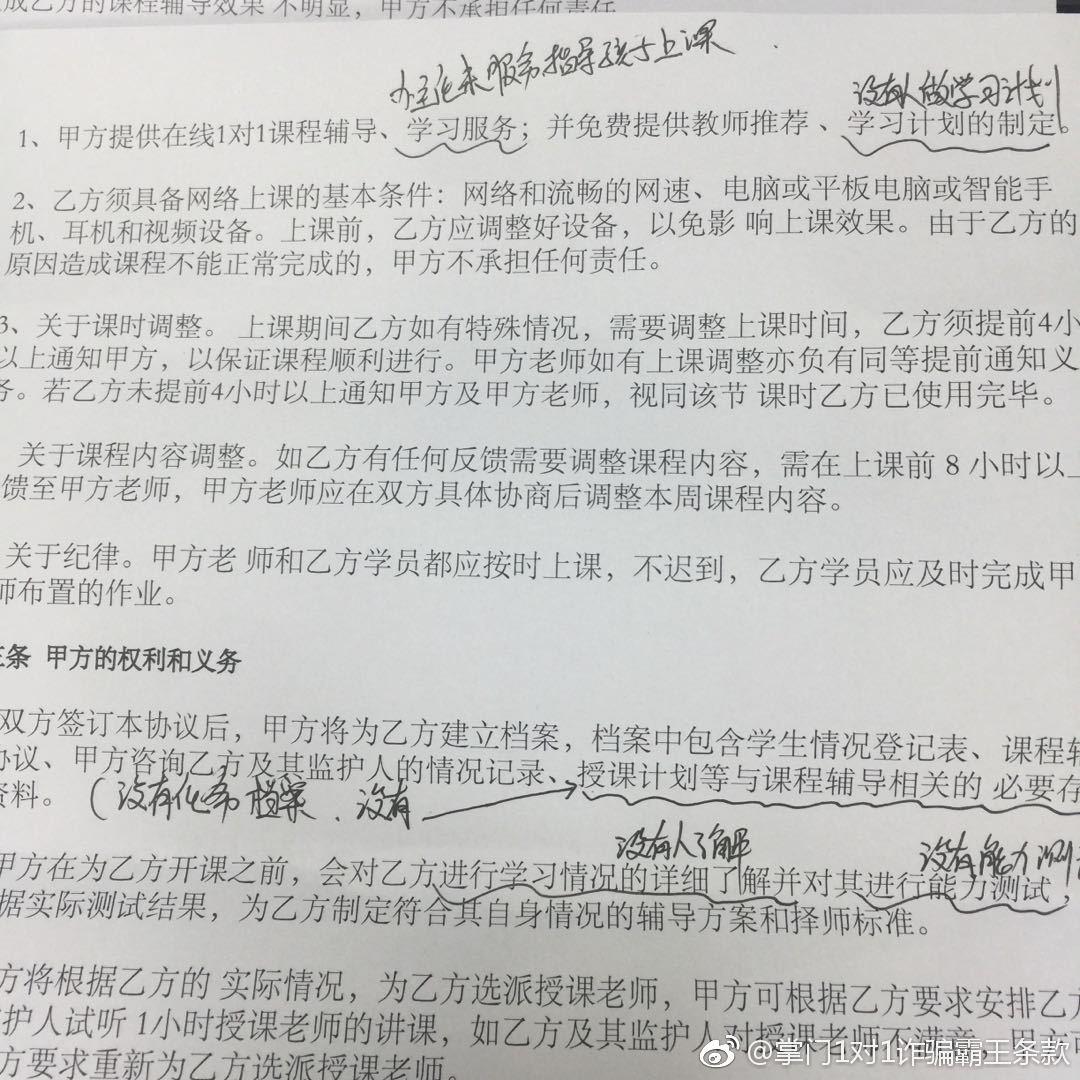 成乙方的课程辅导效果 不明显，甲方不承担任何责任
服务指导孩子上课
没有人做学习计划
1、甲方提供在线1对1课程辅导、学习服务；并免费提供教师推荐 、学习计划的制定。
2、乙方须具备网络上课的基本条件：网络和流畅的网速、电脑或平板电脑或智能手
机、耳机和视频设备。上课前，乙方应调整好设备，以免影 响上课效果。由于乙方的
原因造成课程不能正常完成的，甲方不承担任何责任。
3、关于课时调整。 上课期间乙方如有特殊情况，需要调整上课时间，乙方须提前4小
以上通知甲方，以保证课程顺利进行。甲方老师如有上课调整亦负有同等提前通知义
务。若乙方未提前4小时以上通知甲方及甲方老师，视同该节 课时乙方已使用完毕。
关于课程内容调整。如乙方有任何反馈需要调整课程内容，需在上课前 8 小时以上
馈至甲方老师，甲方老师应在双方具体协商后调整本周课程内容。
关于纪律。甲方老 师和乙方学员都应按时上课，不迟到，乙方学员应及时完成甲
师布置的作业。
三条 甲方的权利和义务
双方签订本协议后，甲方将为乙方建立档案，档案中包含学生情况登记表、课程辅
协议、甲方咨询乙方及其监护人的情况记录、授课计划等与课程辅导相关的 必要存
资料。（没有任何档案、没有
没有人了解
没有能力测
甲方在为乙方开课之前，会对乙方进行学习情况的详细了解并对其进行能力测试，
据实际测试结果，为乙方制定符合其自身情况的辅导方案和择师标准。
方将根据乙方的 实际情况，为乙方选派授课老师，甲方可根据乙方要求安排乙方
护人试听 1小时授课老师的讲课，如乙方及其监护人对授课老师不满意，甲方可
方要求重新为乙方选派授课老师。
@掌门1对1诈骗霸王条款